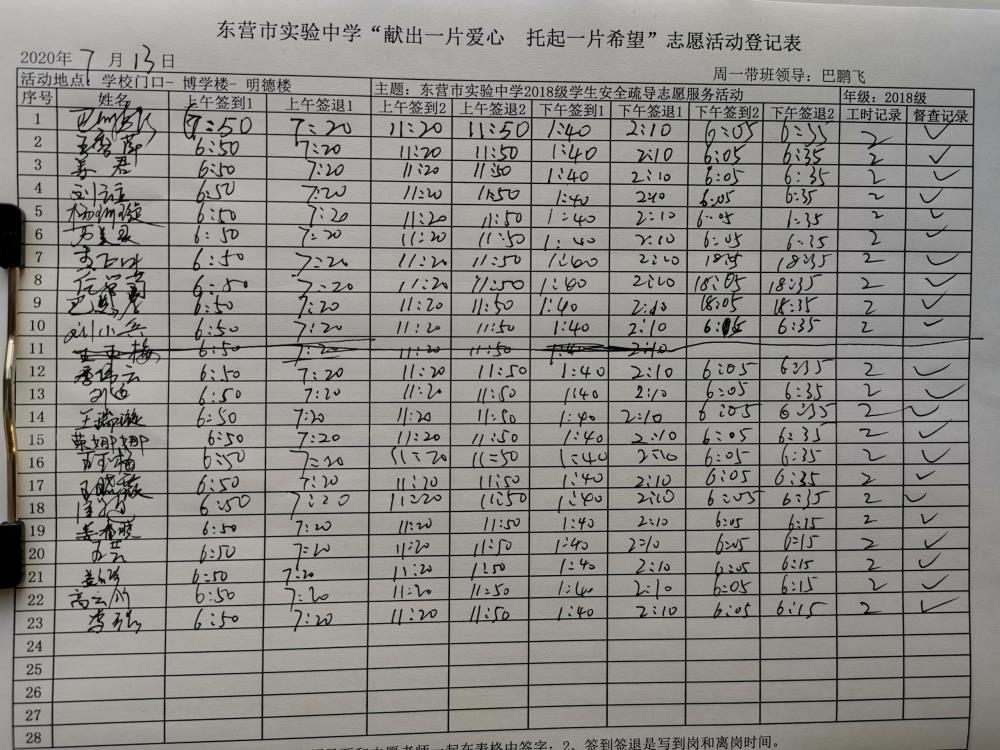 东营市实验中学“献出一片爱心 托起一片希望”志愿活动登记表
2020年7月13日 周一带班领导：巴鹏飞
活动地点：学校门口- 博学楼- 明德楼 主题：东营市实验中学2018级学生安全疏导志愿服务活动 年级：2018级
序号 姓名 上午签到1 上午签退1 上午签到2 上午签退2 下午签到1 下午签退1 下午签到2 下午签退2 工时记录 督查记录
1 7:50 7:20 11:20 11:50 1:40 2:10 6:05 6:35 2 ✓
2 6:50 7:20 11:20 11:50 1:40 2:10 6:05 6:35 2 ✓
3 姜君 6:50 7:20 11:20 11:50 1:40 2:10 6:05 6:35 2 ✓
4 6:50 7:20 11:20 11:50 1:40 2:10 6:05 6:35 2 ✓
5 6:50 7:20 11:20 11:50 1:40 2:10 6:05 1:35 2 ✓
6 6:50 7:20 11:20 11:50 1:40 2:10 6:05 6:35 2 ✓
7 6:50 7:20 11:20 11:50 1:40 2:10 18:35 2 ✓
8 6:50 7:20 11:20 11:50 1:40 2:10 18:05 18:35 2 ✓
9 6:50 7:20 11:20 11:50 1:40 2:10 18:05 18:35 2 ✓
10 刘小兵 6:50 7:20 11:20 11:50 1:40 2:10 6:05 6:35 2 ✓
11 6:50 7:20 11:20 11:50 1:40 2:10
12 6:50 7:20 11:20 11:50 1:40 2:10 6:05 6:35 2 ✓
13 6:50 7:20 11:20 11:50 1:40 2:10 6:05 6:35 2 ✓
14 6:50 7:20 11:20 11:50 1:40 2:10 6:05 6:35 2 ✓
15 6:50 7:20 11:20 11:50 1:40 2:10 6:05 6:35 2 ✓
16 6:50 7:20 11:20 11:50 1:40 2:10 6:05 6:35 2 ✓
17 6:50 7:20 11:20 11:50 1:40 2:10 6:05 6:35 2 ✓
18 6:50 7:20 11:20 11:50 1:40 2:10 6:05 6:35 2 ✓
19 6:50 7:20 11:20 11:50 1:40 2:10 6:05 6:15 2 ✓
20 6:50 7:20 11:20 11:50 1:40 2:10 6:05 6:15 2 ✓
21 6:50 7:20 11:20 11:50 1:40 2:10 6:05 6:15 2 ✓
22 6:50 7:20 11:20 11:50 1:40 2:10 6:05 6:15 2 ✓
23 李强 6:50 7:20 11:20 11:50 1:40 2:10 6:05 6:15 2 ✓
24
25
26
27
28
一起在表格中签字；2、签到签退是写到岗和离岗时间。